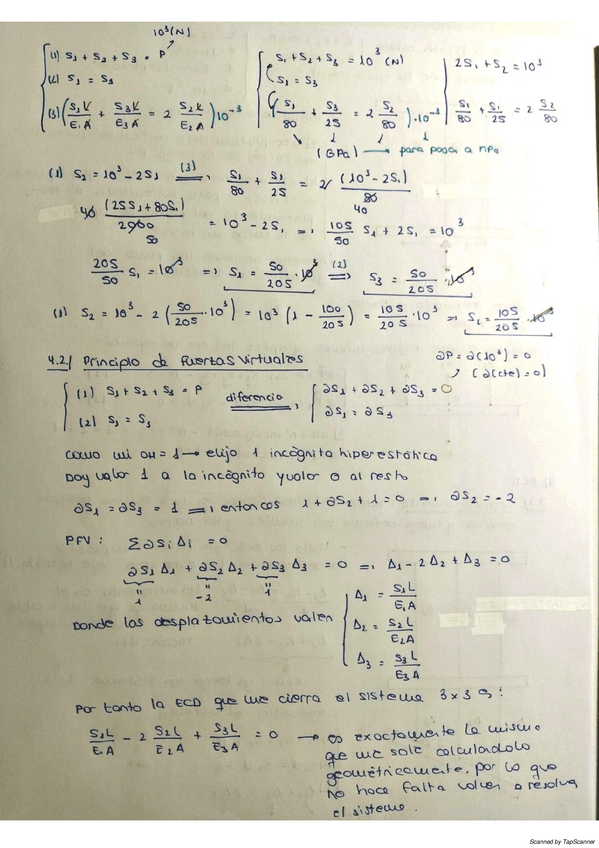 10³(N)
(1) S₁ + S₂ + S₃ = P
(2) S₁ = S₃
(3) (S₁L/E₁A + S₃L/E₃A = 2 S₂L/E₂A) 10⁻³
S₁ + S₂ + S₃ = 10³ (N)
S₁ = S₃
(S₁/80 + S₃/25 = 2 S₂/80) · 10⁻³
2S₁ + S₂ = 10³
S₁/80 + S₁/25 = 2 S₂/80
(GPa) → para pasar a MPa
(1) S₂ = 10³ - 2S₁ (3) ⇒, S₁/80 + S₁/25 = 2 (10³ - 2S₁)/80
40
40 (25S₁ + 80S₁)/2000 = 10³ - 2S₁ ⇒, 105/50 S₁ + 2S₁ = 10³
50
205/50 S₁ = 10³ ⇒, S₁ = 50/205 · 10³ (2) ⇒ S₃ = 50/205 · 10³
(1) S₂ = 10³ - 2 (50/205 · 10³) = 10³ (1 - 100/205) = 105/205 · 10³ ⇒ S₂ = 105/205 · 10³
4.2./ Principio de Fuerzas Virtuales
∂P = ∂(10³) = 0
(∂(cte) = 0)
(1) S₁ + S₂ + S₃ = P
(2) S₁ = S₃
diferencio ,
∂S₁ + ∂S₂ + ∂S₃ = 0
∂S₁ = ∂S₃
como mi OH = 1 → elijo 1 incógnita hiperestática
Doy valor 1 a la incógnito y valor 0 al resto
∂S₁ = ∂S₃ = 1 ⇒, entonces 1 + ∂S₂ + 1 = 0 ⇒, ∂S₂ = -2
PFV : Σ∂Sᵢ Δᵢ = 0
∂S₁ Δ₁ + ∂S₂ Δ₂ + ∂S₃ Δ₃ = 0 ⇒, Δ₁ - 2Δ₂ + Δ₃ = 0
1 -2 1
Donde los desplazamientos valen
Δ₁ = S₁L/E₁A
Δ₂ = S₂L/E₂A
Δ₃ = S₃L/E₃A
Por tanto la ECD que me cierra el sistema 3x3 es:
S₁L/E₁A - 2 S₂L/E₂A + S₃L/E₃A = 0 → es exactamente la misma
que me salió calculándolo
geométricamente, por lo que
no hace falta volver a resolver
el sistema.
Scanned by TapScanner